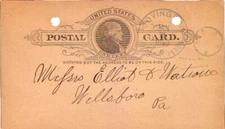 UNITED STATES
POSTAL CARD.
NOTHING BUT THE ADDRESS TO BE ON THIS SIDE.
Messrs Elliot & Watrous
Wellsboro
Pa